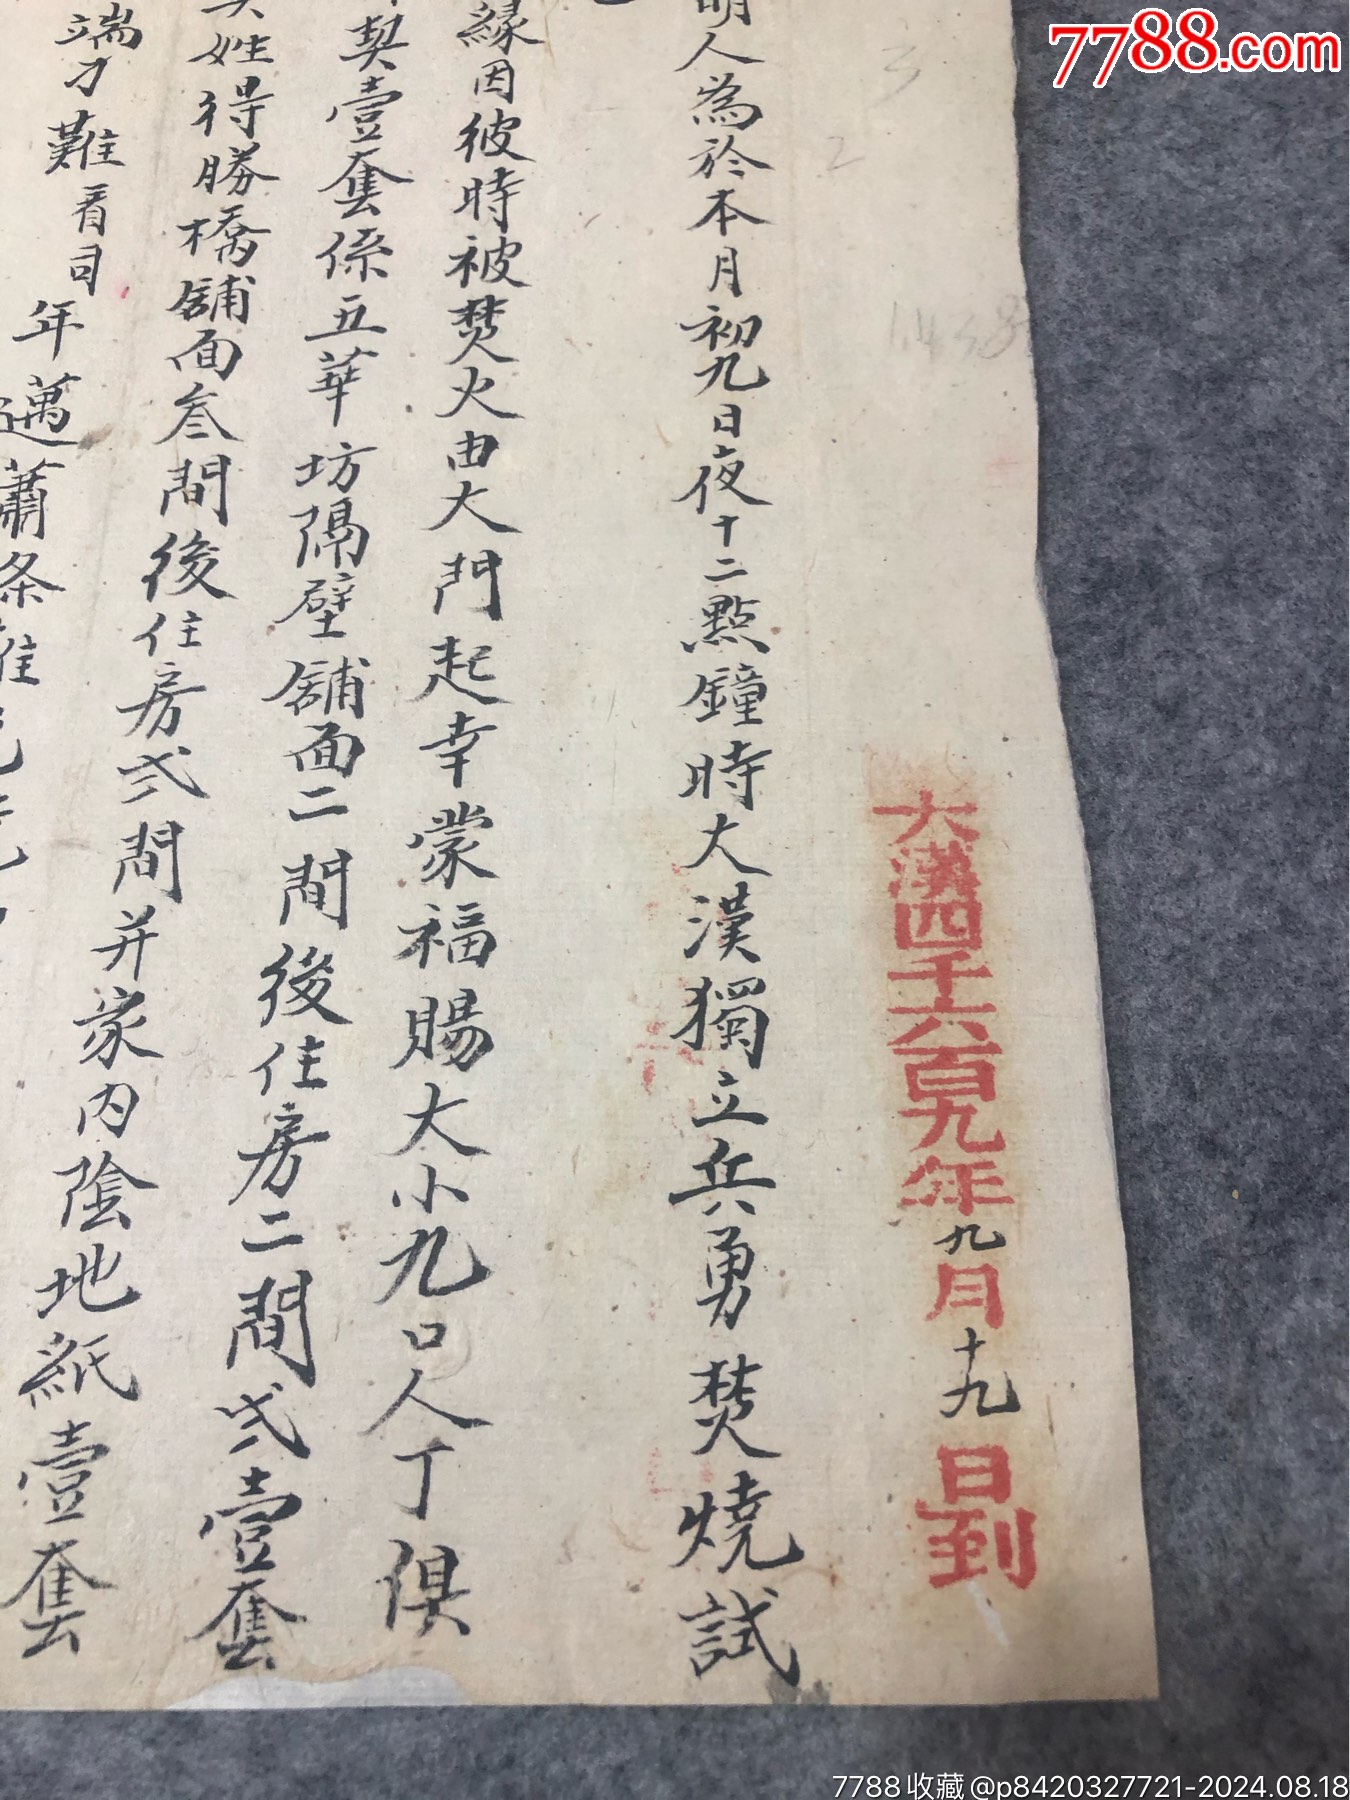 7788.com
3
2
大漢四千六百九年九月十九日到
明人為於本月初九日夜十二點鐘時大漢獨立兵勇焚燒試
緣因彼時被焚火由大門起幸蒙福賜大小九口人丁俱
契壹套係五華坊隔壁舖面二間後住房二間弍壹套
姓得勝橋舖面叁間後住房弍間并家內陰地紙壹套
端力難看司
年邁蕭条難
7788收藏@p8420327721-2024.08.18